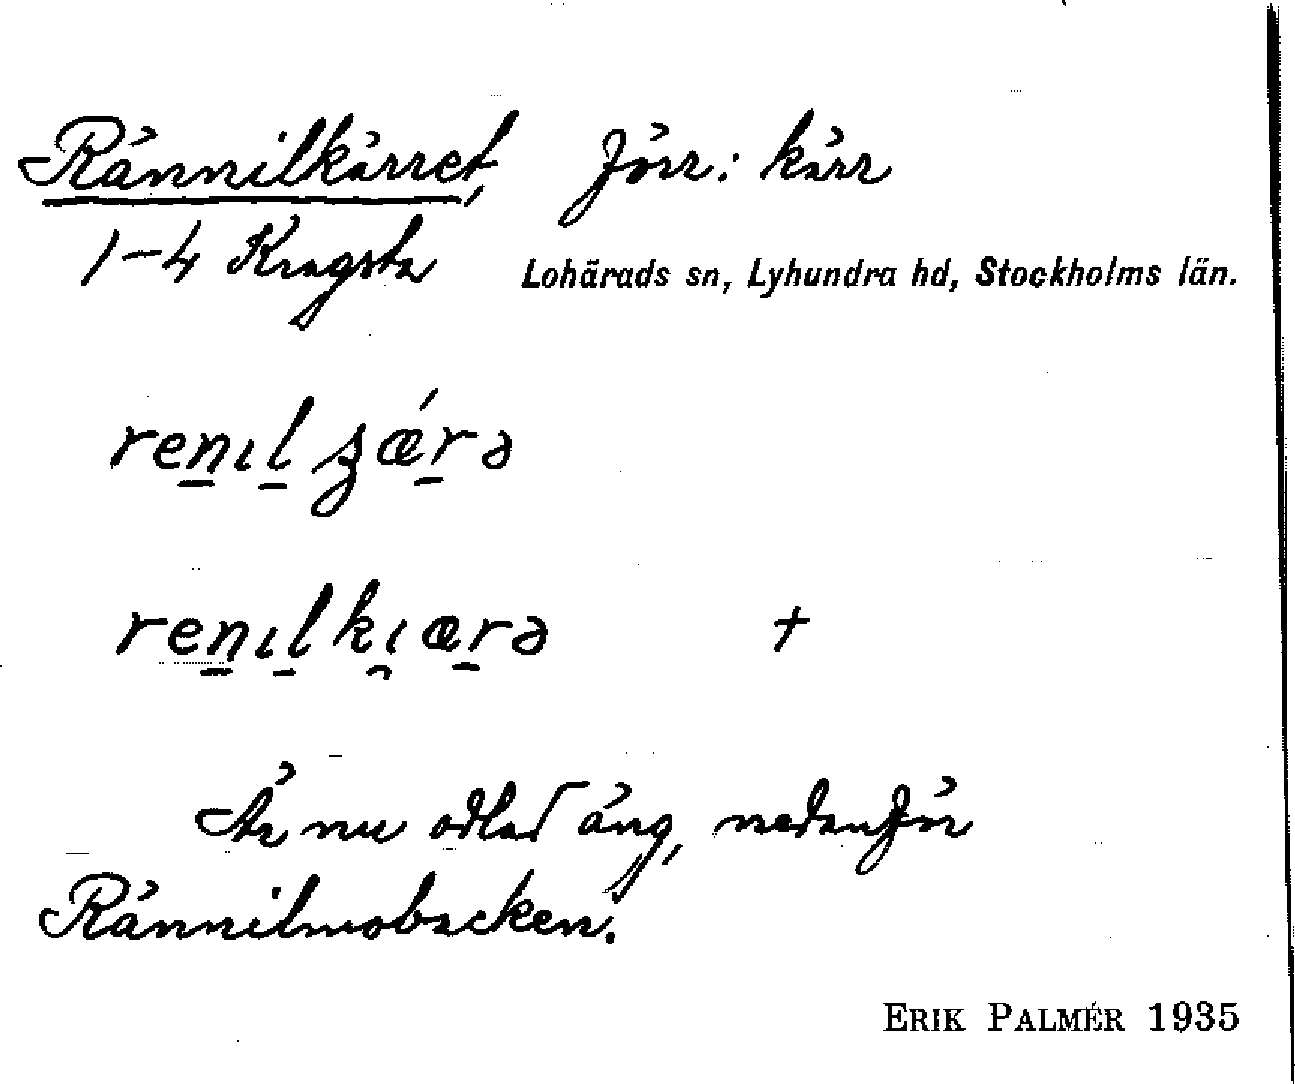 Rännilkärret, förr: kärr
1-4 Kragsta Lohärads sn, Lyhundra hd, Stockholms län.
ren̲ıl̲ʒǽr̲ə
ren̲ıl̲kı̯ær̲ə +
Är nu odlad äng, nedanför
Rännilmobacken.
ERIK PALMÉR 1935